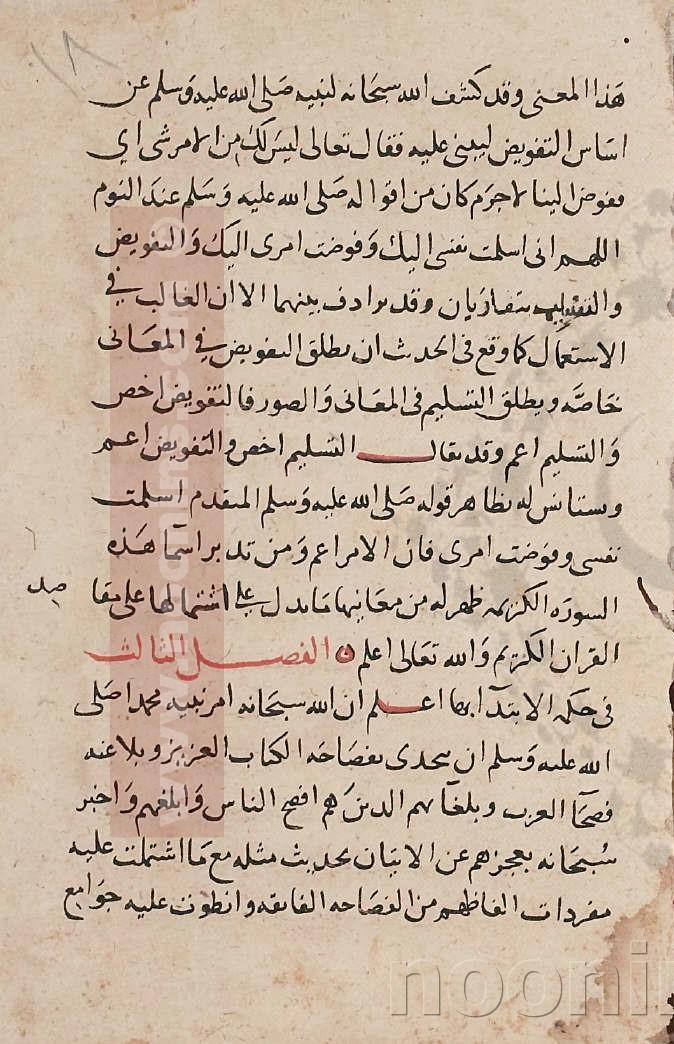 ١٨
هذا المعنى وقد كشف الله سبحانه لنبيه صلى الله عليه وسلم عن
اساس التفويض ليبنى عليه فقال تعالى ليس لك من الامر شى اي
مفوض الينا لا جرم كان من اقواله صلى الله عليه وسلم عند النوم
اللهم انى اسلمت نفسى اليك وفوضت امرى اليك والتفويض
والتسليم متقاربان وقد ترادف بينهما الا ان الغالب في
الاستعمال كما وقع فى الحديث ان يطلق التفويض في المعانى
خاصه ويطلق التسليم فى المعانى والصور فالتفويض اخص
والتسليم اعم وقد يقال التسليم اخص والتفويض اعم
ويستانس له بظاهر قوله صلى الله عليه وسلم المتقدم اسلمت
نفسى وفوضت امرى فان الامر اعم ومن تدبر اسما هذه
السوره الكريمه ظهر له من معانيها ما يدل على اشتمالها على مقا
صد
القران الكريم والله تعالى اعلم الفصل الثالث
فى حكم الابتدا بها اعلم ان الله سبحانه امر نبيه محمدا صلى
الله عليه وسلم ان يتحدى بفصاحه الكتاب العزيز وبلاغته
فصحا العرب وبلغآهم الذين هم افصح الناس وابلغهم واخبر
سبحانه بعجزهم عن الاتيان بحديث مثله مع ما اشتملت عليه
مفردات الفاظهم من الفصاحه الفائقه وانطوت عليه جوامع
noonin